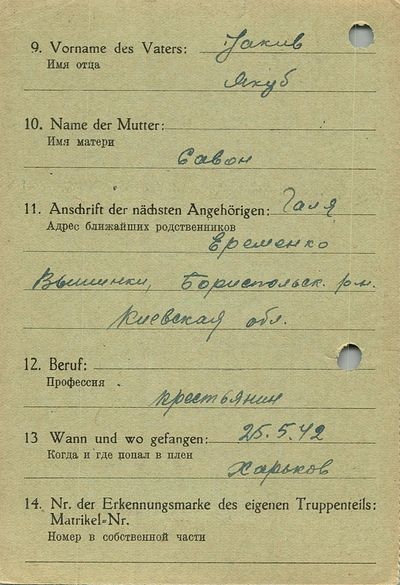 9. Vorname des Vaters: Jакив
Имя отца
Якуб
10. Name der Mutter:
Имя матери
Савон
11. Anschrift der nächsten Angehörigen: Галя
Адрес ближайших родственников
Еременко
Вышинки, Бориспольск. р-н.
Киевская обл.
12. Beruf:
Профессия
крестьянин
13 Wann und wo gefangen: 25.5.42
Когда и где попал в плен
Харьков
14. Nr. der Erkennungsmarke des eigenen Truppenteils:
Matrikel-Nr.
Номер в собственной части